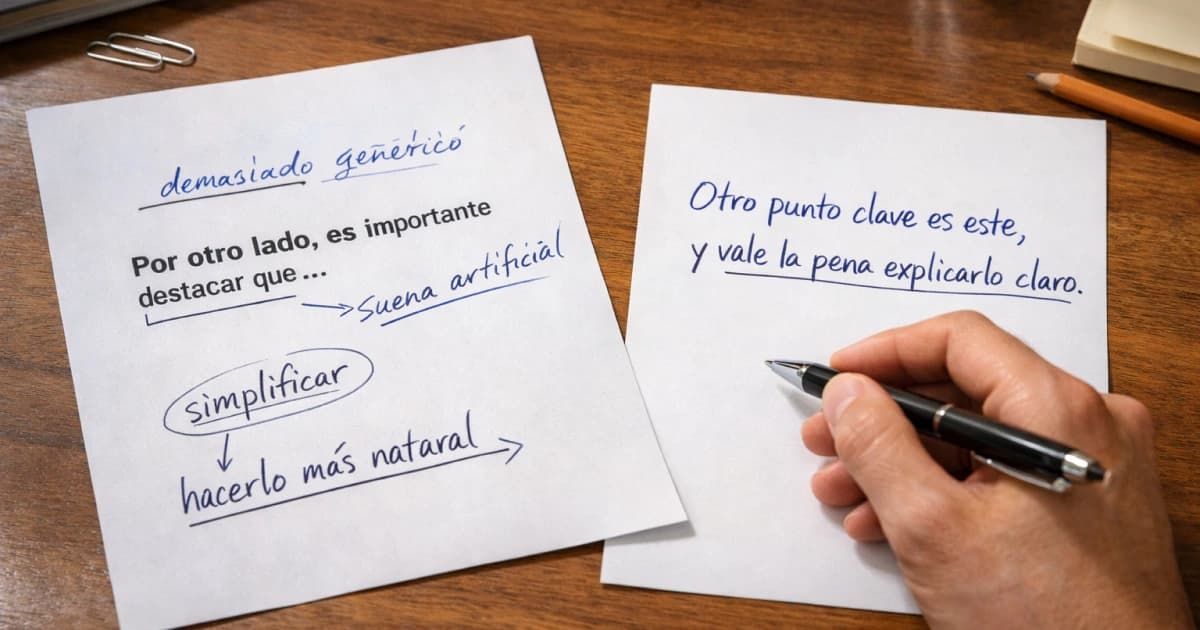 demasiado genérico
Por otro lado, es importante
destacar que ...
suena artificial
simplificar
hacerlo más nataral
Otro punto clave es este,
y vale la pena explicarlo claro.